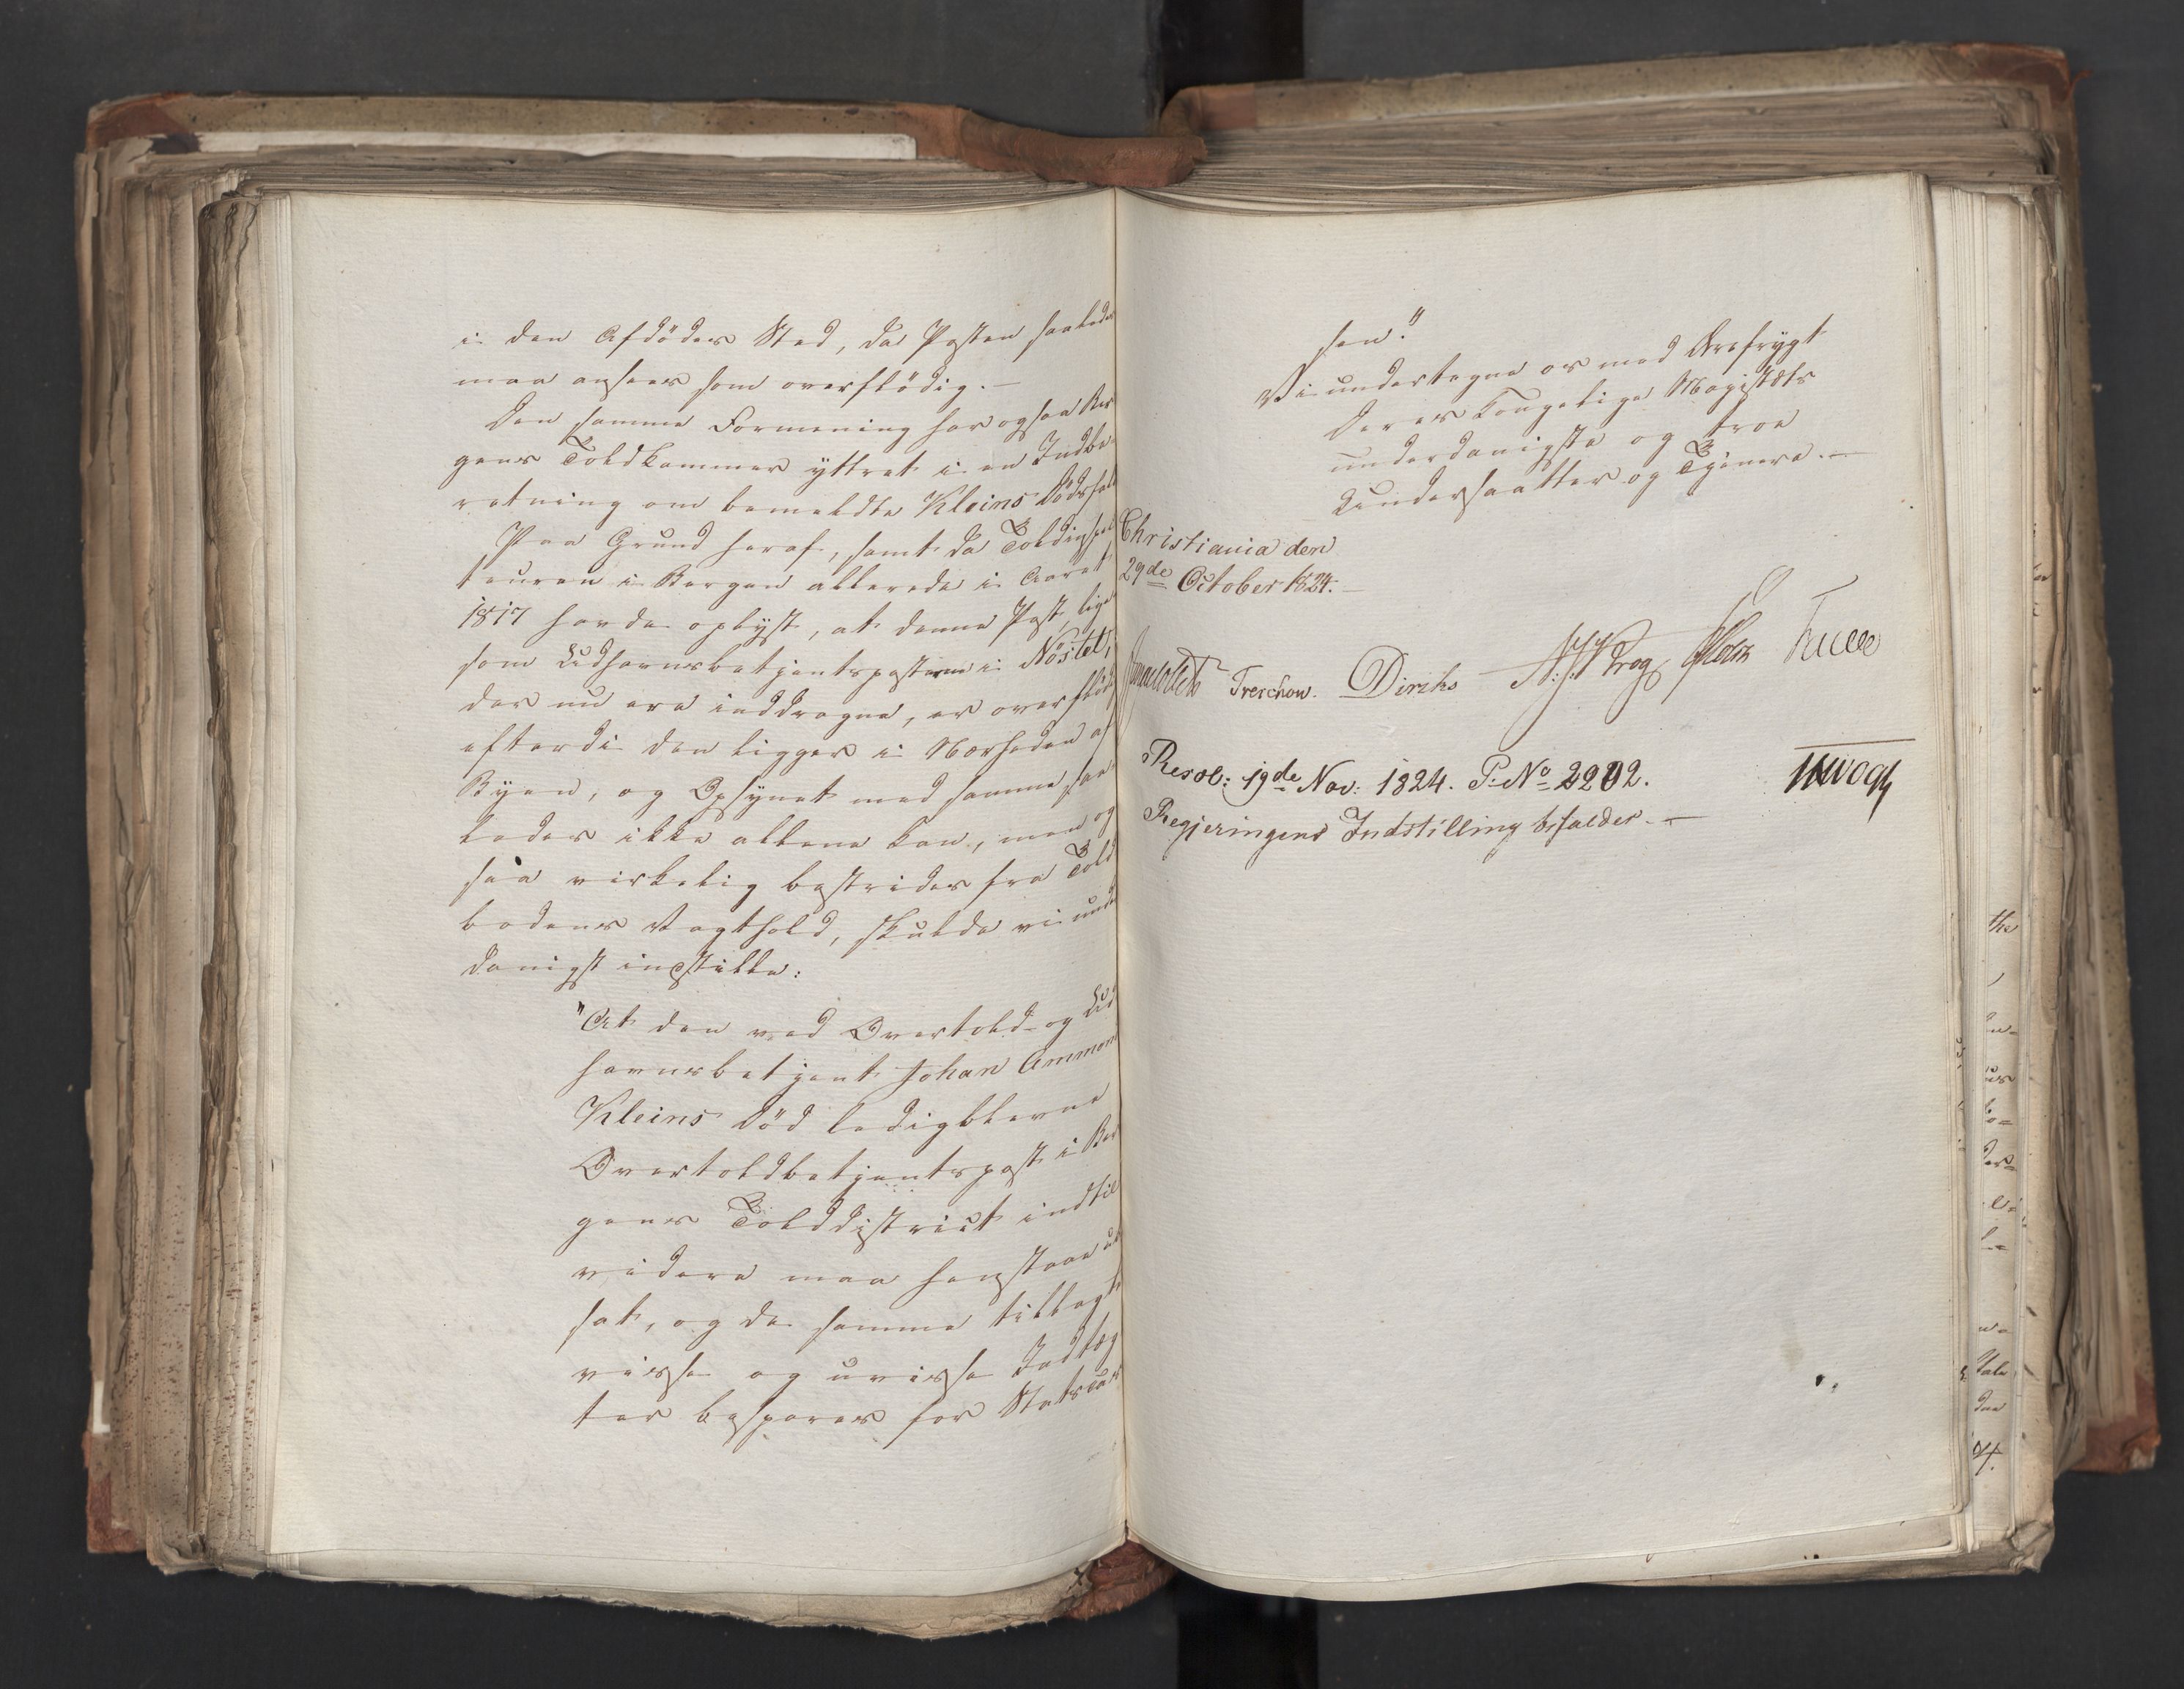 i den Afdödes Sted, da Posten saaledes
maa ansees som overflödig. —
Den samme Formening har ogsaa Ber
gens Toldkammer yttret i en Indbe-
retning om bemeldte Kleins Dödsfald
Paa Grund heraf, samt da Toldinspec
teuren i Bergen allerede i Aaret
1817 havde oplyst, at denne Post, lige
som Udhavnsbetjentsposten i Nöstet,
der nu ere inddragne, er overflödig
efterdi den ligger i Nærheden af
Byen, og Opsynet med samme saa-
ledes ikke allene kan, men og
saa virkelig bestrides fra Told
bodens Vagthold, skulde vi under
danigst indstille:
"At den ved Overtold- og Ud
havnsbetjent Johan Ammon
Kleins Död ledigblevne
Overtoldbetjentspost i Ber
gens Tolddistrict indtil
videre maa henstaae ube
sat, og de samme tillagte
visse og uvisse Indtæg
ter bespares for Statscas
sen."
Vi undertegne os med Ærefrygt
Deres Kongelige Majestæts
underdanigste og troe
Undersaatter og Tjenere. —
Christiania den
29de October 1824. —
Treschow. Diriks Krog
Resol: 19de Nov: 1824. P. No 2202.
Regjeringens Indstilling bifaldes. —